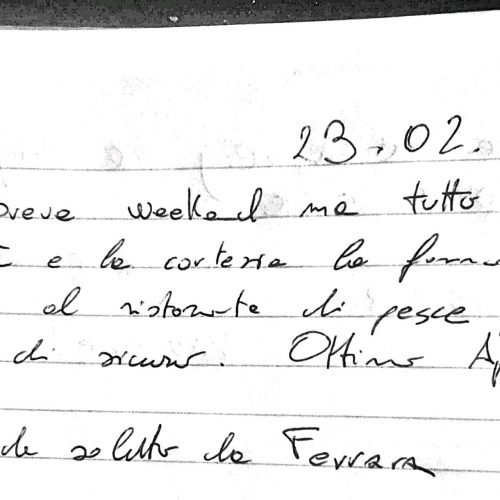 23.02.
breve weekend ma tutto
e la cortesia la
al ristorante di pesce
di sicuro. Ottimo
saluto da Ferrara